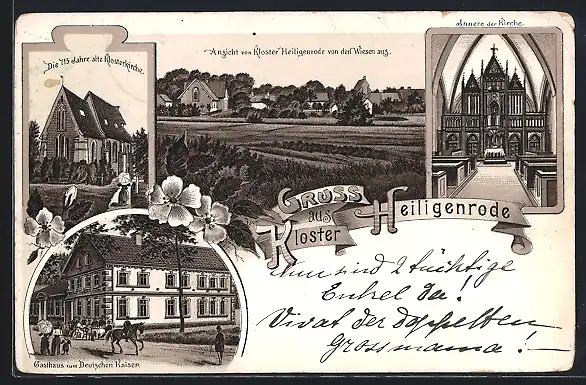 Innere der Kirche.
Ansicht von Kloster Heiligenrode von den Wiesen aus.
Die 715 Jahre alte Klosterkirche.
Gruss
aus
Kloster Heiligenrode
Nun sind 2 tüchtige
Enkel da!
Vivat der doppelten
Grossmama!
Gasthaus zum Deutschen Kaiser.